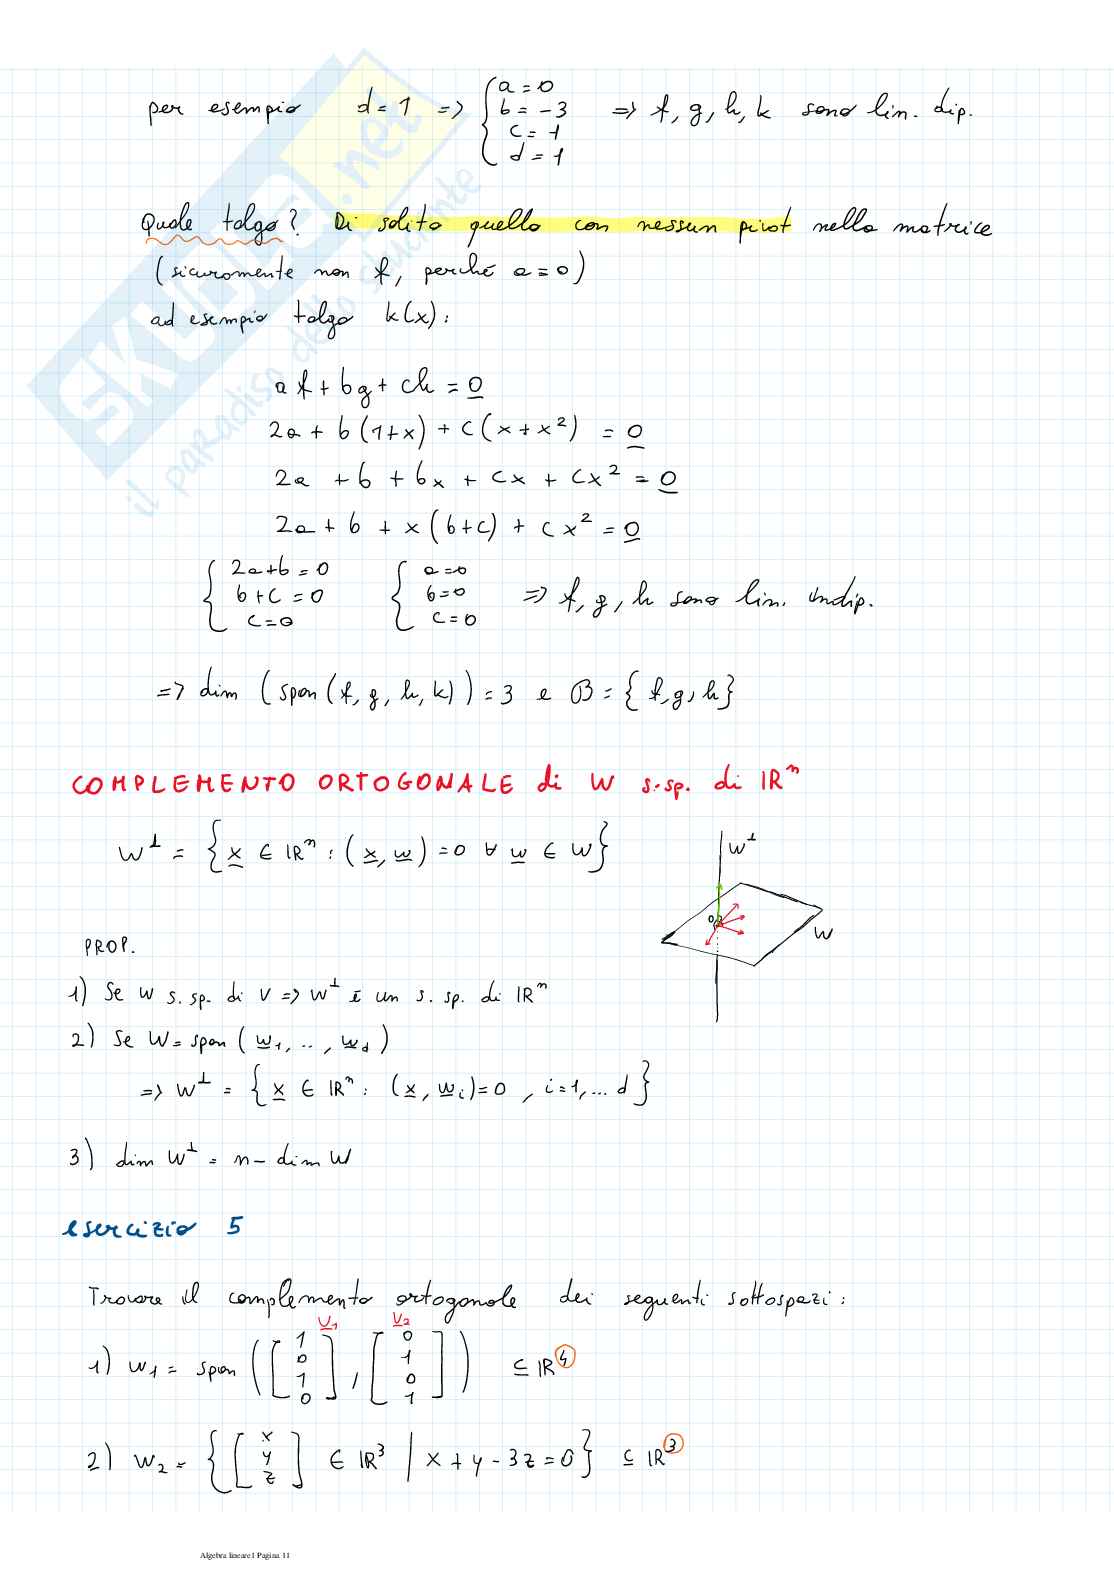 per esempio d = 1 => { a = 0
b = -3
c = -1
d = 1 => f, g, h, k sono lin. dip.
Quale tolgo? Di solito quello con nessun pivot nella matrice
(sicuramente non f, perché a = 0)
ad esempio tolgo k(x):
af + bg + ch = 0
2a + b(1+x) + c(x+x²) = 0
2a + b + bx + cx + cx² = 0
2a + b + x(b+c) + cx² = 0
{ 2a+b = 0 { a=0
b+c = 0 b=0 => f, g, h sono lin. indip.
c=0 c=0
=> dim (span(f, g, h, k)) = 3 e B = {f, g, h}
COMPLEMENTO ORTOGONALE di W s.sp. di ℝⁿ
W^⊥ = {x ∈ ℝⁿ : (x, w) = 0 ∀ w ∈ W}
W^⊥
0
W
PROP.
1) Se W s. sp. di V => W^⊥ è un s. sp. di ℝⁿ
2) Se W = span (w₁, .., w_d)
=> W^⊥ = {x ∈ ℝⁿ : (x, w_i) = 0 , i=1,... d}
3) dim W^⊥ = n - dim W
esercizio 5
Trovare il complemento ortogonale dei seguenti sottospazi:
v₁ v₂
1) W₁ = span ([1 0 1 0], [0 1 0 1]) ⊆ ℝ⁴
2) W₂ = {[x y z] ∈ ℝ³ | x + y - 3z = 0} ⊆ ℝ³
Algebra lineare1 Pagina 11
SKUOLA.net
il paradiso dello studente